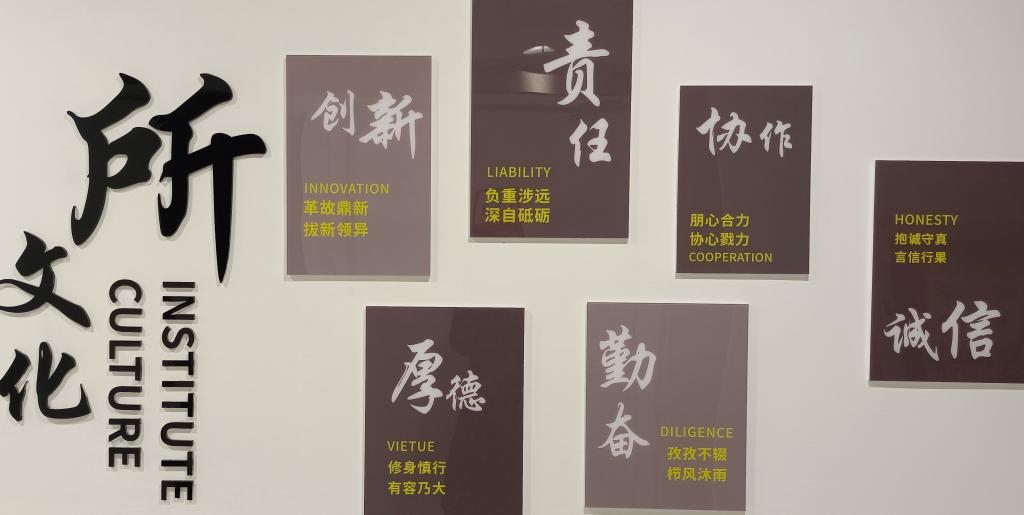 所
文化
INSTITUTE
CULTURE
创新
INNOVATION
革故鼎新
拔新领异
责任
LIABILITY
负重涉远
深自砥砺
协作
朋心合力
协心戮力
COOPERATION
HONESTY
抱诚守真
言信行果
诚信
厚德
VIETUE
修身慎行
有容乃大
勤奋
DILIGENCE
孜孜不辍
栉风沐雨